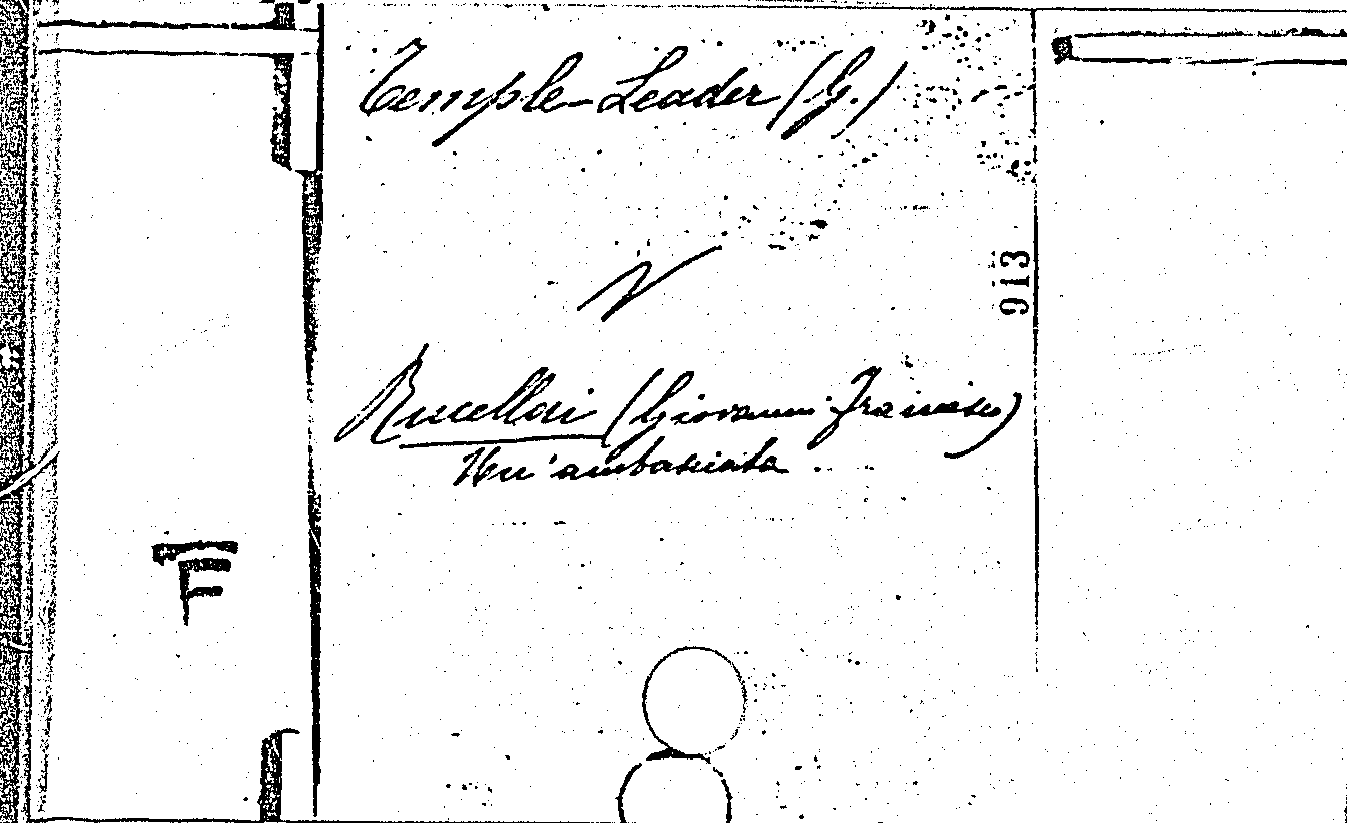 Temple-Leader (G.)
V
913
Rucellai (Giovanni Francesco)
Un'ambasciata ....
F